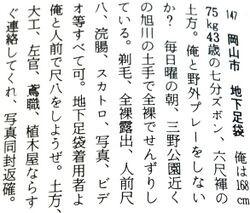 147 岡山市 地下足袋 俺は168cm
75kg43歳の七分ズボン、六尺褌の
土方。俺と野外プレーをしない
か?毎日曜の朝、三野公園近く
の旭川の土手で全裸でせんずりし
ている。剃毛、全裸露出、人前尺
八、浣腸、スカトロ、写真、ビデ
オ等すべて可。地下足袋着用者よ
俺と人前で尺八をしようぜ。土方、
大工、左官、鳶職、植木屋ならす
ぐ連絡してくれ、写真同封返確。